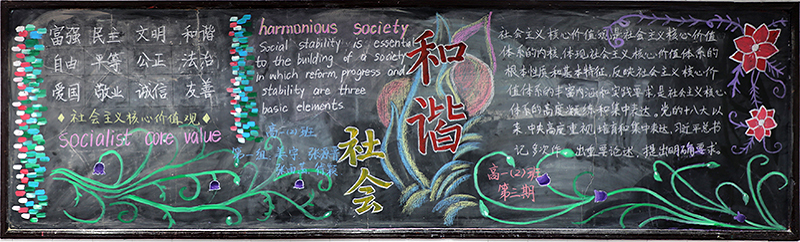 富强 民主 文明 和谐
自由 平等 公正 法治
爱国 敬业 诚信 友善
社会主义核心价值观
socialist core value
harmonious society
Social stability is essential
to the building of a society
in which reform, progress and
stability are three
basic elements
高一(2)班
第一组
和谐
社会
社会主义核心价值观是社会主义核心价值
体系的内核,体现社会主义核心价值体系的
根本性质和基本特征,反映社会主义核心价
值体系的丰富内涵和实践要求,是社会主义核心
体系的高度凝练和集中表达。党的十八大以
来,中央高度重视培育和集中表达。习近平总书
记多次作出重要论述,提出明确要求。
高一(2)班
第三期